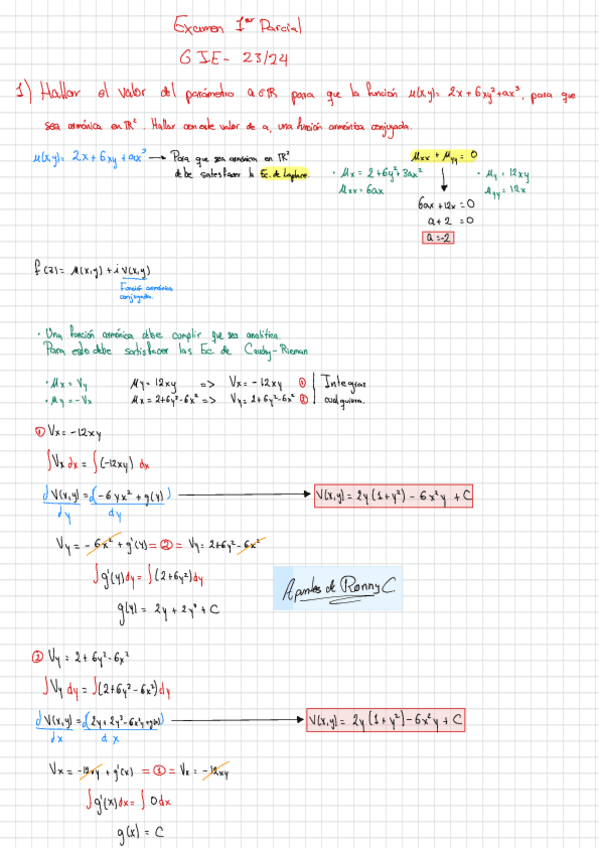 Examen 1er Parcial
GIE - 23/24
1) Hallar el valor del parámetro a∈ℝ para que la función μ(x,y) = 2x + 6xy² + ax³, para que
sea armónica en ℝ². Hallar con este valor de a, una función armónica conjugada.
μ(x,y) = 2x + 6xy + ax³ → Para que sea armónica en ℝ²
debe satisfacer la Ec. de Laplace.
μxx + μyy = 0
· μx = 2 + 6y² + 3ax²
μxx = 6ax
· μy = 12xy
μyy = 12x
6ax + 12x = 0
a + 2 = 0
a = -2
f(z) = μ(x,y) + i v(x,y)
Función armónica
conjugada.
· Una función armónica debe cumplir que sea analítica.
Para esto debe satisfacer las Ec de Cauchy-Rieman
· μx = Vy
· μy = -Vx
μy = 12xy => Vx = -12xy ①
μx = 2+6y²-6x² => Vy = 2+6y²-6x² ②
Integrar
cualquiera.
① Vx = -12xy
∫Vx dx = ∫(-12xy) dx
d V(x,y) = d(-6yx² + g(y))
dy dy
V(x,y) = 2y(1+y²) - 6x²y + C
Vy = -6x² + g'(y) = ② = Vy = 2+6y²-6x²
∫g'(y)dy = ∫(2+6y²)dy
g(y) = 2y + 2y³ + C
Apuntes de Ronny C
② Vy = 2 + 6y² - 6x²
∫Vy dy = ∫(2+6y²-6x²)dy
d V(x,y) = d(2y + 2y³ - 6x²y + g(x))
dx dx
V(x,y) = 2y(1+y²) - 6x²y + C
Vx = -12xy + g'(x) = ① = Vx = -12xy
∫g'(x)dx = ∫0dx
g(x) = C